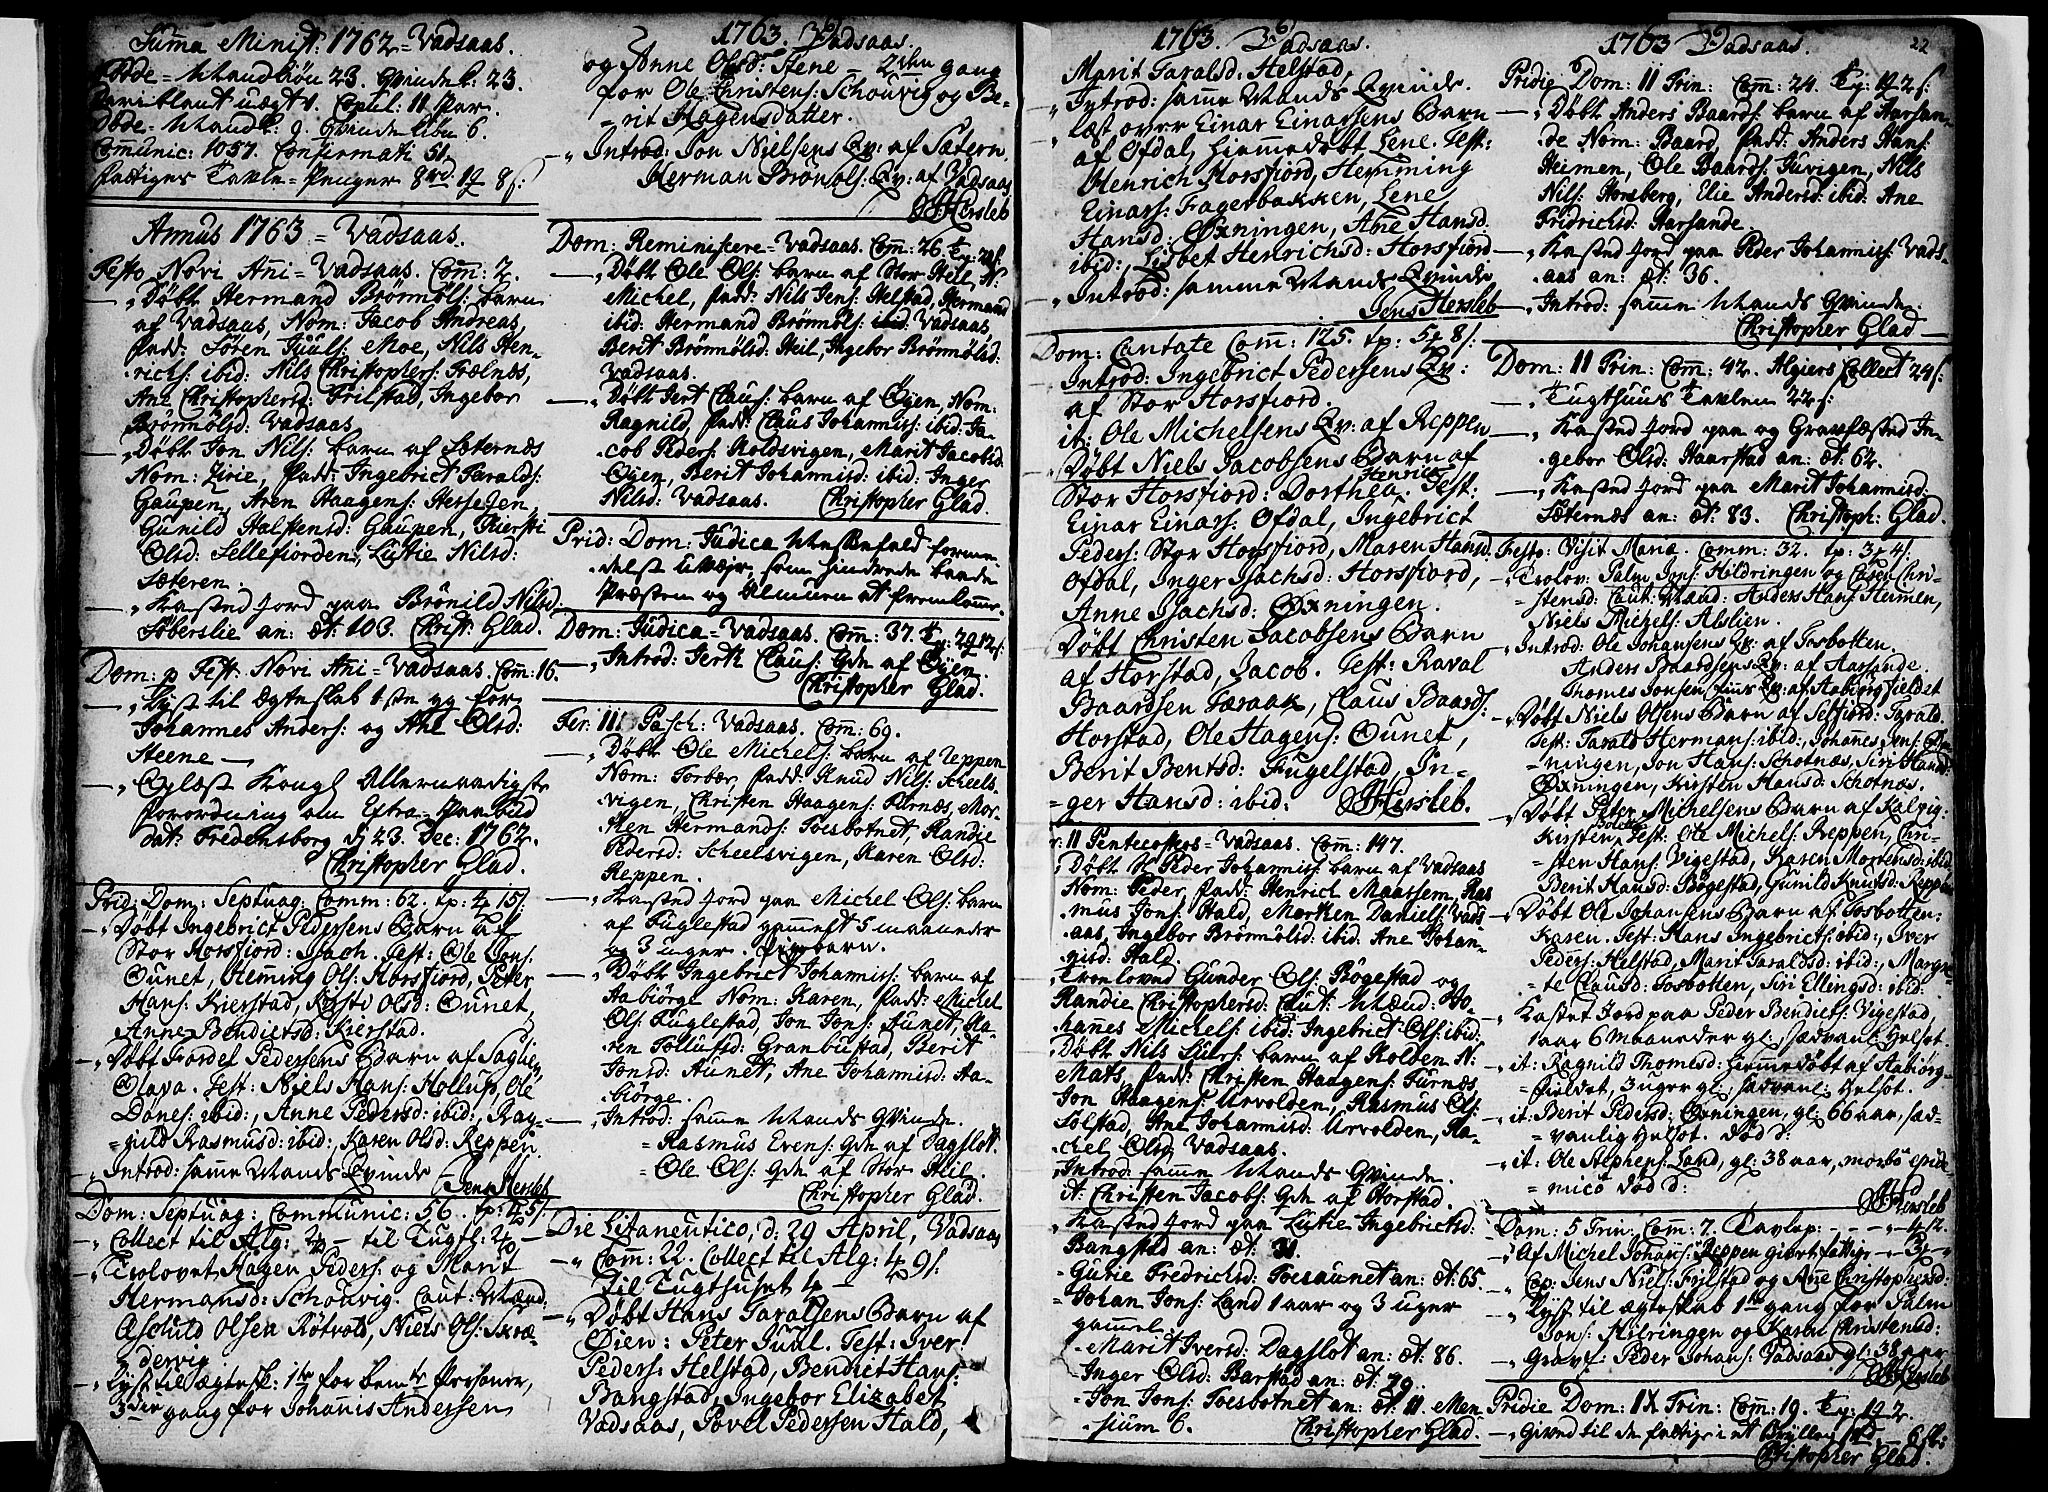 Suma Minist: 1762 = Vadsaas.
Føde = Mandkiøn 23 Qvinde k: 23.
uægt 1. Copul: 11 Par.
Døde = Mandk: 9. Qvinde kiøn 6.
Comunic: 1057. Confirmati 51.
Fattiges Tavle = Penger 8 rd
Annus 1763 = Vadsaas.
Festo Novi Ani = Vadsaas. Com: 2.
Døbt Hermand Brønnøls: barn
af Vadsaas, Nom: Jacob Andreas,
Fadd: Søren Juuls: Moe, Nils Hen-
richs: ibid: Nils Christophers: Trælnæs,
Ane Christophersd: Frilstad, Ingebor
Brønnølsd: Vadsaas.
Døbt Jon Nils: barn af Sæternæs
Nom: Zirie, Fadd: Ingebrict Taralds:
Gaupen, Aren Haagens:
Gunild Halstensd: Gaupen, Kiersti
Olsd: Sellefiorden, Lustie Nilsd:
Sæteren.
Kasted Jord paa Brønild Nilsd:
Søberslie an: æt: 103. Christ: Glad.
Dom: p Fest: Novi Ani = Vadsaas. Com: 16.
Lyst til Ægteskab 1ste gg for
Johannes Anders: og Ane Olsd:
Steene
Oplæst Kongl Allernaadigste
forordning om Extra
dat: Fredensborg d 23 Dec: 1762.
Christopher Glad.
Prid: Dom: Septuag: Comm: 62. tp: 4 15 s:
Døbt Ingebrict Pedersens Barn af
Stor Horsfiord: Isach. Test: Ole Jons:
Ounet, Hemming Ols: Horsfiord, Peter
Hans: Kierstad, Kirsti Olsd: Ounet,
Anne Bendictsd: Kierstad.
Døbt Tordel Pedersens Barn af Saglie,
Olava. Test: Niels Hans: Hollup, Ole
Danels: ibid:, Anne Pedersd: ibid:, Rag-
=nild Rasmusd: ibid:, Karen Olsd: Reppen.
Introd: samme Mands Qvinde
Jens Hersleb
Dom: Septuag: Communic: 56. tp: 4 5 s:
Collect til Alg: 2 til Tugth: 2
Trolovet Hagen Peders: og Marit
Hermansd: Schouvig. Caut: Mænd
Aschild Olsen Røtvold, Niels Ols: Skræ-
dervig
Lyst til ægtesk: 1te for bemte Personer,
3die gang for Johanis Andersen
1763. Vadsaas.
og Anne Olsd: Stene – 2den gang
for Ole Christens: Schouvig og Be-
=rit Hagensdatter.
Introd: Jon Nielsens Qv: af Sætern.
Herman Brønøls: Qv: af Vadsaas
JHersleb
Dom: Reminiscere = Vadsaas. Com: 26.
Døbt Ole Ols: barn af Stor Heil, N:
Michel, Fadd: Nils Jens: Helstad, Hermand
ibid: Hermand Brønnøls: Vadsaas
Berit Brønnølsd: Heil, Ingebor Brønnølsd:
Vadsaas.
Døbt Jert Claus: barn af Øyen, Nom:
Ragnild, Fadd: Claus Johannis: ibid: Ja-
cob Peders: Roldsvigen, Marit Jacobsd:
Øyen, Berit Johannisd: ibid: Inger
Nilsd: Vadsaas. Christopher Glad.
Prid: Dom: Judica Messefald forme-
delst Uvejr, som hindrede baade
Præsten og Almuen at fremkomme.
Dom: Judica = Vadsaas. Com: 37.
Introd: Jerk Claus: Qde af Øyen.
Christopher Glad.
Fer: III Pasch: Vadsaas. Com: 69.
Døbt Ole Michels: barn af Reppen
Nom: Torber, Fadd: Knud Nils: Scheels-
vigen, Christen Haagens: Furnæs, Mor-
ten Hermands: Tosbotnet, Randie
Pedersd: Scheelsvigen, Karen Olsd:
Reppen.
Kasted Jord paa Michel Ols: barn
af Fuglestad gammelt 5 maaneder
og 3 uger.
Døbt Ingebrict Johannis: barn af
Aabiørge Nom: Karen, Fadd: Michel
Ols: Fuglestad, Jon Jons: Aunet, Ka-
ren Tollufsd: Granbustad, Berit
Jonsd: Aunet, Ane Johannisd: Aa-
biørge.
Introd: samme Mands Qvinde.
= Rasmus Evens: Qde af Dagslot.
= Ole Ols: Qde af Stor Heil.
Christopher Glad.
Die Litaneutico, d: 29 April, Vadsaas
Comm: 22. Collect til Alg: 4 9 s:
Til Tugthuset 4 –
Døbt Hans Taraldsens Barn af
Øien: Peter Juul. Test: Iver
Peders: Helstad, Bendict Hans:
Bangstad, Ingebor Elizabet
Vadsaas, Povel Pedersen Hald,
1763. Vadsaas.
Marit Taralsd: Helstad,
Introd: samme Mands Qvinde.
Læst over Einar Einarsens Barn
af Ofdal, hiemmedøbt Lene. Test:
Henrich Horsfiord, Hemming
Einars: Fagerbakken, Lene
Hansd: Øxningen, Ane Hansd:
ibid:, Lisbet Henrichsd: Horsfiord
Introd: samme Mands Qvinde
Jens Hersleb
Dom: Cantate Com: 125. tp: 5 8 s:
Introd: Ingebrict Pedersens Qv:
af Stor Horsfiord.
it: Ole Michelsens Qv: af Reppen
Døbt Niels Jacobsens Barn af
Stor Horsfiord: Dorthea Henrich. Test:
Einar Einars: Ofdal, Ingebrict
Peders: Stor Horsfiord, Maren Hansd:
Ofdal, Inger Isachsd: Horsfiord,
Anne Isachsd: Øxningen.
Døbt Christen Jacobsens Barn
af Horstad, Jacob. Test: Raval
Baardsen Færaak, Claus Baards:
Horstad, Ole Hagens: Ounet,
Berit Bentsd: Fugelstad, In-
=ger Hansd: ibid: JHersleb.
II Pentecostes = Vadsaas. Com: 147.
Døbt Peder Johannis: barn af Vadsaas
Nom: Peder, Fadd: Henrich Maarsem, Ras
mus Jons: Hald, Morten Daniels: Vads-
aas, Ingebor Brønnølsd: ibid: Ane Johan-
nisd: Hald.
Troeloved Gunder Ols: Bøgestad og
Randie Christophersd: Caut: Mænd: Jo-
hannes Michels: ibid: Ingebrict Ols: ibid:
Døbt Nils Siurs: barn af Kolden N:
Mats, Fadd: Christen Haagens: Furnæs,
Jon Haagens: Urvolden, Rasmus Ols:
Solstad, Ane Johannisd: Urvolden, Ra-
chel Olsd: Vadsaas.
Introd: samme Mands Qvinde.
it: Christen Jacobs: Qde af Horstad.
Kasted Jord paa Lustie Ingebrictsd:
Bangstad an: æt: 31.
Gurie Fredrichsd: Tosaunet an: æt: 65.
Johan Jons: Land 1 aar og 3 uger
gammel.
Marit Iversd: Dagslot an: æt: 86.
Inger Olsd: Barstad an: æt: 79.
Jon Jons: Tosbotnet an: æt: 11. Men-
sium 6. Christopher Glad.
1763 Vadsaas. 22
Pridie Dom: II Trin: Com: 24.
Døbt Anders Baards: barn af Aarsan-
de Nom: Baard, Fadd: Anders Hans:
Heimen, Ole Baards: Turigen, Nils
Nils: Horsberg, Elie Andersd: ibid: Ane
Fridrichsd: Aarsande.
Kasted Jord paa Peder Johannis: Vads-
aas an: æt: 36.
Introd: samme Mands Qvinde.
Christopher Glad
Dom: II Trin: Com: 42. Algiers Collect 24 s:
Tugthuus Tavlen 22 s:
Kasted Jord paa og Gravfæsted In-
gebor Olsd: Haarstad an: æt: 62.
Kasted Jord paa Marit Johannisd:
Sæternæs an: æt: 83. Christoph: Glad.
Festo: Visit Mariæ. Comm: 32. tp: 3 4 s:
Trolov: Palm Jons: Hildringen og Caren Chri-
=stensd: Caut: Mænd: Anders Hans: Heimen,
Niels Michels: Alslien.
Introd: Ole Johansens Qv: af Tosbotten
Anders Baardsens Qv: af Aarsande.
Thomes Jonsen fins Qv: af Aabiørgfieldet
Døbt Niels Olsens Barn af Selfiord: Tarald.
Test: Tarald Hermans: ibid:, Johannes Jens: Øx-
=ningen, Jon Hans: Schotnæs, Siri Hansd:
Øxningen, Kirsten Hansd: Schotnæs.
Døbt Peter Michelsens Barn af Kalvig:
Kirsten Test: Ole Michels: Reppen, Chri-
=sten Hans: Vigestad, Karen Mortensd: ibid
Berit Hansd: Bøgestad, Gunild Knutsd: Reppen
Døbt Ole Johansens Barn af Tosbotten:
Karen. Test: Hans Ingebricts: ibid:, Iver
Peders: Helstad, Marit Taraldsd: ibid:, Margre-
=te Clausd: Tosbotten, Siri Ellingsd: ibid:
Kastet Jord paa Peder Bendicts: Vigestad,
1 aar 6 Maaneder gl: sædvanl: Helsot.
it: Ragnild Thomesd: hiemmedøbt af Aabiørg-
=fieldet, 3 uger gl: sædvanl: Helsot.
it: Berit Pedersd: Øxningen, gl: 66 aar, sæd-
=vanlig Helsot. død d:
it: Ole Stephens: Land, gl: 38 aar, morbo epide
=mico død d:
JHersleb
Dom: 5 Trin: Com: 7. Tavlep: - - - 4 12.
Af Michel Johans: Reppen givet fattige - 3
Cop: Jens Niels: Frilstad og Anne Christophersd:
Lyst til ægteskab 1te gang for Palm
Jons: Hilringen og Karen Christensd:
Gravf: Peder Johans: Vadsaas gl: 38 aar
JHersleb
Pridie Dom: IX Trin: Com: 19.
Gived til de fattige i et Bryllup
Christopher Glad.